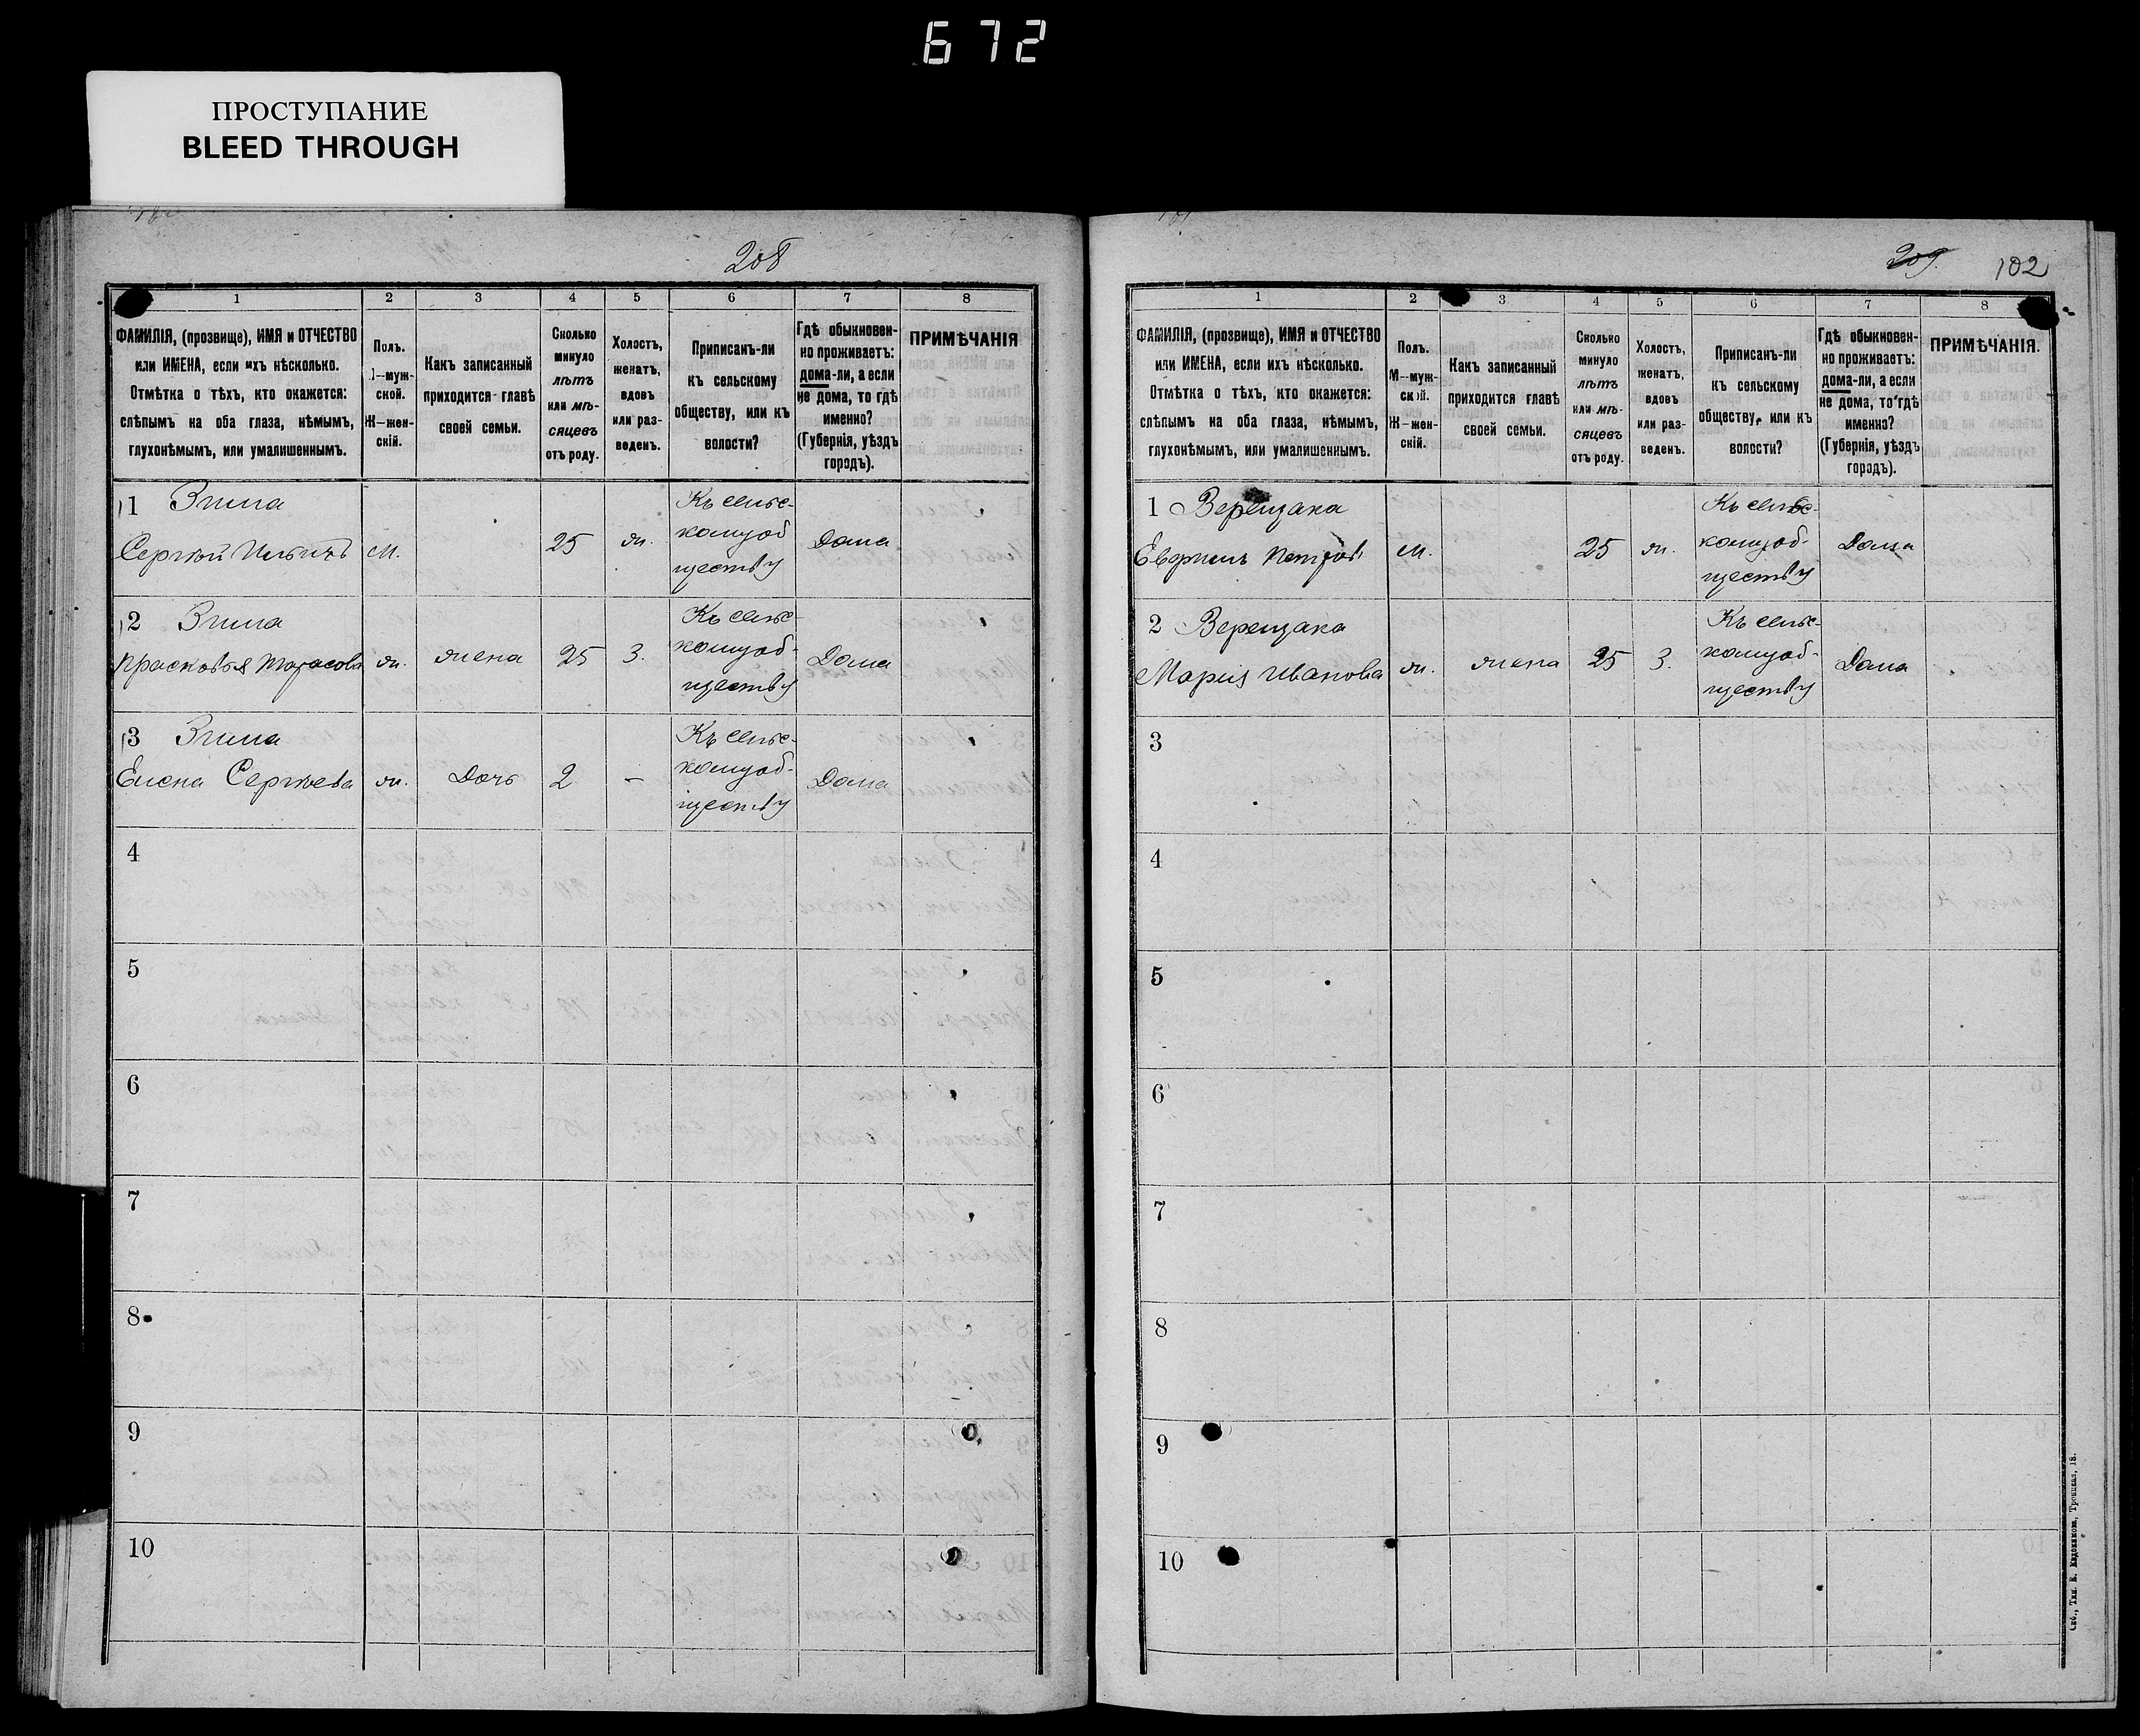 672
ПРОСТУПАНИЕ
BLEED THROUGH
208
1 2 3 4 5 6 7 8
ФАМИЛІЯ, (прозвище), ИМЯ и ОТЧЕСТВО
или ИМЕНА, если ихъ нѣсколько.
Отмѣтка о тѣхъ, кто окажется:
слѣпымъ на оба глаза, нѣмымъ,
глухонѣмымъ, или умалишеннымъ.
Полъ.
М—муж-
ской.
Ж—жен-
скій.
Какъ записанный
приходится главѣ
своей семьи.
Сколько
минуло
лѣтъ
или мѣ-
сяцевъ
отъ роду.
Холостъ,
женатъ,
вдовъ
или раз-
веденъ.
Приписанъ-ли
къ сельскому
обществу, или къ
волости?
Гдѣ обыкновен-
но проживаетъ:
дома-ли, а если
не дома, то гдѣ
именно?
(Губернія, уѣздъ
городъ).
ПРИМѢЧАНІЯ
1 Зима
Сергѣй Ильичъ м. 25 ж. Къ сельс-
кому об
ществу Дома
2 Зима
Прасковья Тарасова ж. жена 25 З. Къ сельс-
кому об-
ществу Дома
3 Зима
Елена Сергѣева ж. Дочь 2 — Къ сельс-
кому об-
ществу Дома
4
5
6
7
8
9
10
209. 102
1 2 3 4 5 6 7 8
ФАМИЛІЯ, (прозвище), ИМЯ и ОТЧЕСТВО
или ИМЕНА, если ихъ нѣсколько.
Отмѣтка о тѣхъ, кто окажется:
слѣпымъ на оба глаза, нѣмымъ,
глухонѣмымъ, или умалишеннымъ.
Полъ.
М—муж-
ской.
Ж—жен-
скій.
Какъ записанный
приходится главѣ
своей семьи.
Сколько
минуло
лѣтъ
или мѣ-
сяцевъ
отъ роду.
Холостъ,
женатъ,
вдовъ
или раз-
веденъ.
Приписанъ-ли
къ сельскому
обществу, или къ
волости?
Гдѣ обыкновен-
но проживаетъ:
дома-ли, а если
не дома, то гдѣ
именно?
(Губернія, уѣздъ
городъ).
ПРИМѢЧАНІЯ.
1 Верещака
Петровъ м. 25 ж. Къ сельс-
кому об-
ществу Дома
2 Верещака
Марія Иванова ж. жена 25 З. Къ сельс-
кому об-
ществу Дома
3
4
5
6
7
8
9
10
Спб., Тип. Е. Евдокимова, Троицкая, 18.